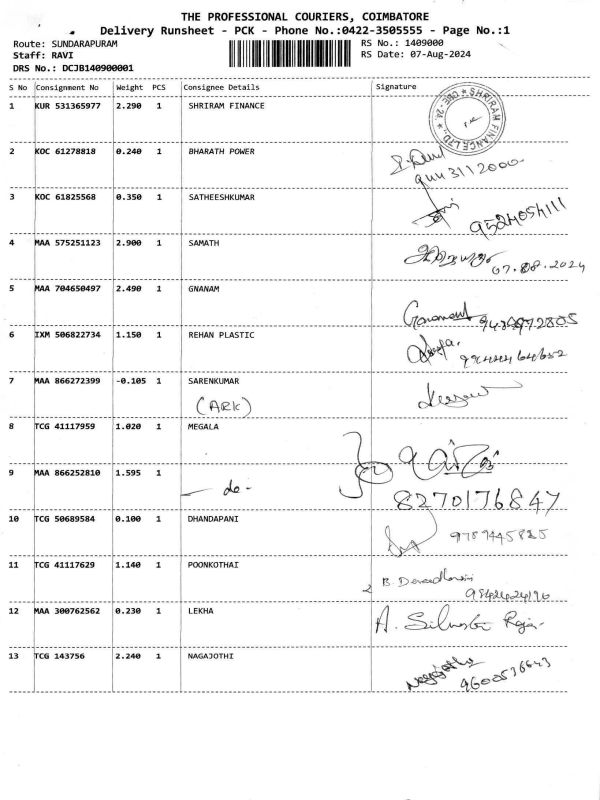 THE PROFESSIONAL COURIERS, COIMBATORE
Delivery Runsheet - PCK - Phone No.:0422-3505555 - Page No.:1
Route: SUNDARAPURAM RS No.: 1409000
Staff: RAVI RS Date: 07-Aug-2024
DRS No.: DCJB140900001
S No Consignment No Weight PCS Consignee Details Signature
1 KUR 531365977 2.290 1 SHRIRAM FINANCE
SHRIRAM FINANCE LTD.
2 KOC 61278818 0.240 1 BHARATH POWER
3 KOC 61825568 0.350 1 SATHEESHKUMAR
4 MAA 575251123 2.900 1 SAMATH
07.08.2024
5 MAA 704650497 2.490 1 GNANAM
6 IXM 506822734 1.150 1 REHAN PLASTIC
7 MAA 866272399 -0.105 1 SARENKUMAR
(ARK)
8 TCG 41117959 1.020 1 MEGALA
9 MAA 866252810 1.595 1
- do -
8270176847
10 TCG 50689584 0.100 1 DHANDAPANI
11 TCG 41117629 1.140 1 POONKOTHAI
12 MAA 300762562 0.230 1 LEKHA
13 TCG 143756 2.240 1 NAGAJOTHI
Nagajothi
9600536643